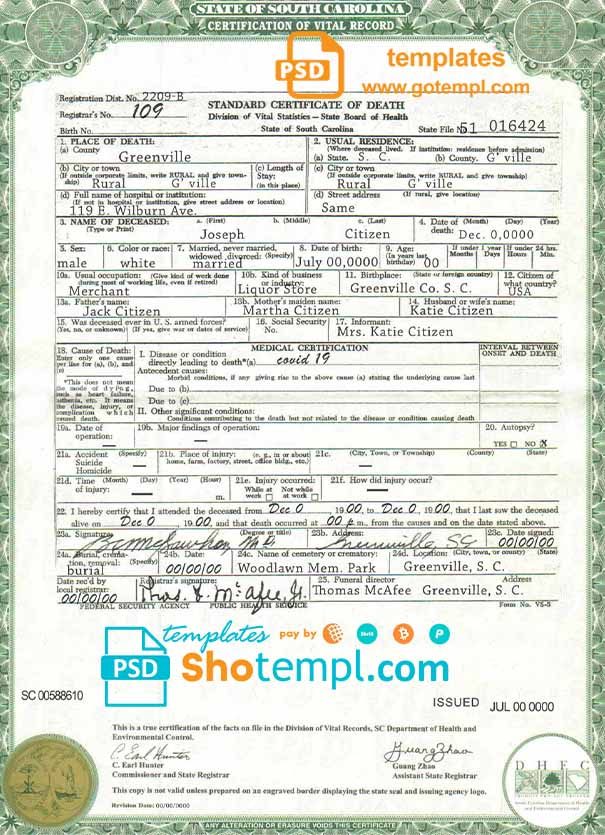 STATE OF SOUTH CAROLINA
CERTIFICATION OF VITAL RECORD
PSD templates
www.gotempl.com
Registration Dist. No. 2209-B
Registrar's No. 109
STANDARD CERTIFICATE OF DEATH
Division of Vital Statistics—State Board of Health
Birth No.
State of South Carolina
State File No. 51 016424
1. PLACE OF DEATH:
(a) County
Greenville
2. USUAL RESIDENCE:
(Where deceased lived. If institution: residence before admission)
(a) State. S. C. (b) County. G' ville
(b) City or town
(If outside corporate limits, write RURAL and give township)
Rural G' ville
(c) Length of Stay: (in this place)
(c) City or town
(If outside corporate limits, write RURAL and give township)
Rural G' ville
(d) Full name of hospital or institution:
(If not in hospital or institution, give street address or location)
119 E. Wilburn Ave.
(d) Street address (If rural, give location)
Same
3. NAME OF DECEASED: (Type or Print)
a. (First) b. (Middle) c. (Last)
Joseph Citizen
4. Date of death: (Month) (Day) (Year)
Dec. 0,0000
5. Sex:
male
6. Color or race:
white
7. Married, never married, widowed, divorced: (Specify)
married
8. Date of birth:
July 00,0000
9. Age: (In years last birthday) 00
If under 1 year Months Days
If under 24 hrs. Hours Min.
10a. Usual occupation: (Give kind of work done during most of working life, even if retired)
Merchant
10b. Kind of business or industry:
Liquor Store
11. Birthplace: (State or foreign country)
Greenville Co. S. C.
12. Citizen of what country?
USA
13a. Father's name:
Jack Citizen
13b. Mother's maiden name:
Martha Citizen
14. Husband or wife's name:
Katie Citizen
15. Was deceased ever in U. S. armed forces?
(Yes, no, or unknown) (If yes, give war or dates of service)
16. Social Security No.
17. Informant:
Mrs. Katie Citizen
18. Cause of Death:
Enter only one cause per line for (a), (b), and (c)
*This does not mean the mode of dying, such as heart failure, asthenia, etc. It means the disease, injury, or complication which caused death.
MEDICAL CERTIFICATION
I. Disease or condition directly leading to death*(a) covid 19
Antecedent causes:
Morbid conditions, if any giving rise to the above cause (a) stating the underlying cause last
Due to (b)
Due to (c)
II. Other significant conditions:
Conditions contributing to the death but not related to the disease or condition causing death
INTERVAL BETWEEN ONSET AND DEATH
19a. Date of operation:
19b. Major findings of operation:
20. Autopsy?
YES NO X
21a. Accident (Specify) Suicide Homicide
21b. Place of injury: (e. g., in or about home, farm, factory, street, office bldg., etc.)
21c. (City, Town, or Township) (County) (State)
21d. Time (Month) (Day) (Year) (Hour) of injury: m.
21e. Injury occurred: While at work Not while at work
21f. How did injury occur?
22. I hereby certify that I attended the deceased from Dec 0, 1900, to Dec 0, 1900, that I last saw the deceased
alive on Dec 0, 1900, and that death occurred at 00 p m., from the causes and on the date stated above.
23a. Signature (Degree or title)
M D
23b. Address
Greenville, SC
23c. Date signed
00/00/00
24a. Burial, cremation, removal: (Specify)
burial
24b. Date:
00/00/00
24c. Name of cemetery or crematory:
Woodlawn Mem. Park
24d. Location: (City, town, or county) (State)
Greenville, S. C.
Date rec'd by local registrar:
00/00/00
Registrar's signature:
Thos. F. McAfee, Jr.
25. Funeral director Address
Thomas McAfee Greenville, S. C.
FEDERAL SECURITY AGENCY PUBLIC HEALTH SERVICE
Form No. VS-3
templates pay by
PSD Shotempl.com
SC 00588610
ISSUED JUL 00 0000
This is a true certification of the facts on file in the Division of Vital Records, SC Department of Health and
Environmental Control.
C. Earl Hunter
Guang Zhao
C. Earl Hunter
Commissioner and State Registrar
Guang Zhao
Assistant State Registrar
This copy is not valid unless prepared on an engraved border displaying the state seal and issuing agency logo.
Revision Date: 00/00/0000
D H E C
South Carolina Department of Health
and Environmental Control
ANY ALTERATION OR ERASURE VOIDS THIS CERTIFICATE